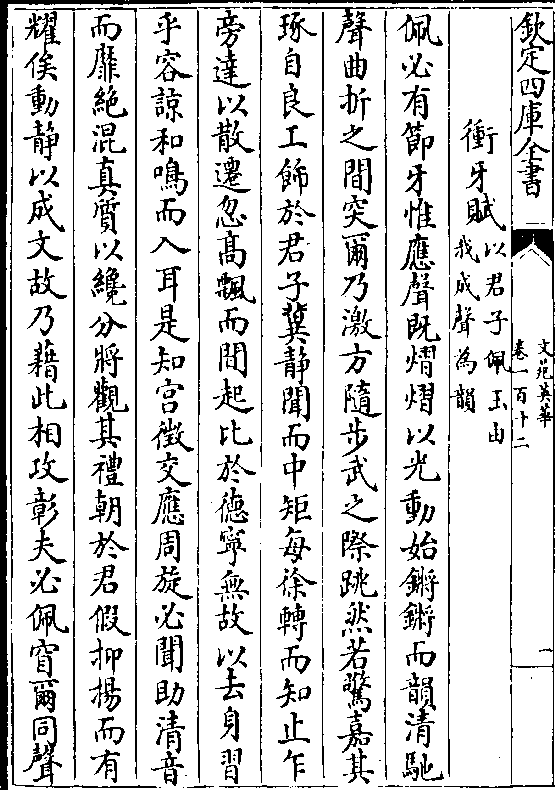 欽定四庫全書
文苑英華
卷一百十二
一
衝牙賦以君子佩玉由
我成聲為韻
佩必有節牙惟應聲既熠熠以光動始鏘鏘而韻清馳
聲曲折之間突爾乃激方隨步武之際跳然若驚嘉其
琢自良工飾於君子冀静聞而中矩每徐轉而知止乍
旁達以散遷忽髙飄而間起比於徳寧無故以去身習
乎容諒和鳴而入耳是知宫徵交應周旋必聞助清音
而靡絶混真質以纔分將觀其禮朝於君假抑揚而有
耀俟動静以成文故乃藉此相攻彰夫必佩窅爾同聲